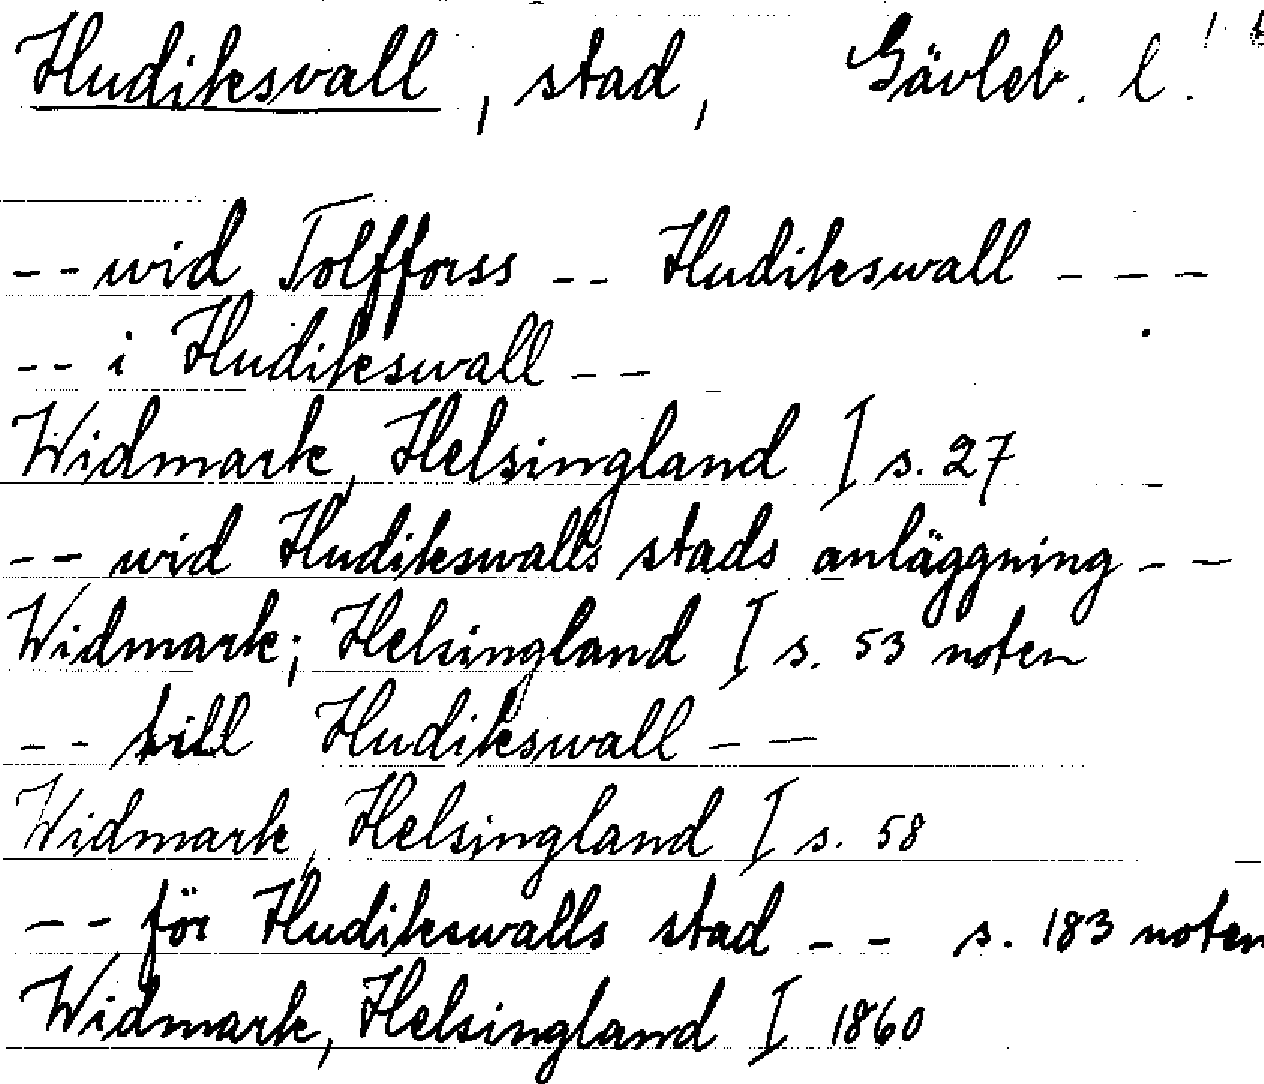 Hudiksvall, stad, Gävleb. l.
-- wid Tolfforss -- Hudikswall - - -
-- i Hudikswall --
Widmark, Helsingland I s. 27
-- wid Hudikswalls stads anläggning --
Widmark; Helsingland I s. 53 noten
-- till Hudikswall --
Widmark, Helsingland I s. 58
-- för Hudikswalls stad -- s. 183 noten
Widmark, Helsingland I 1860